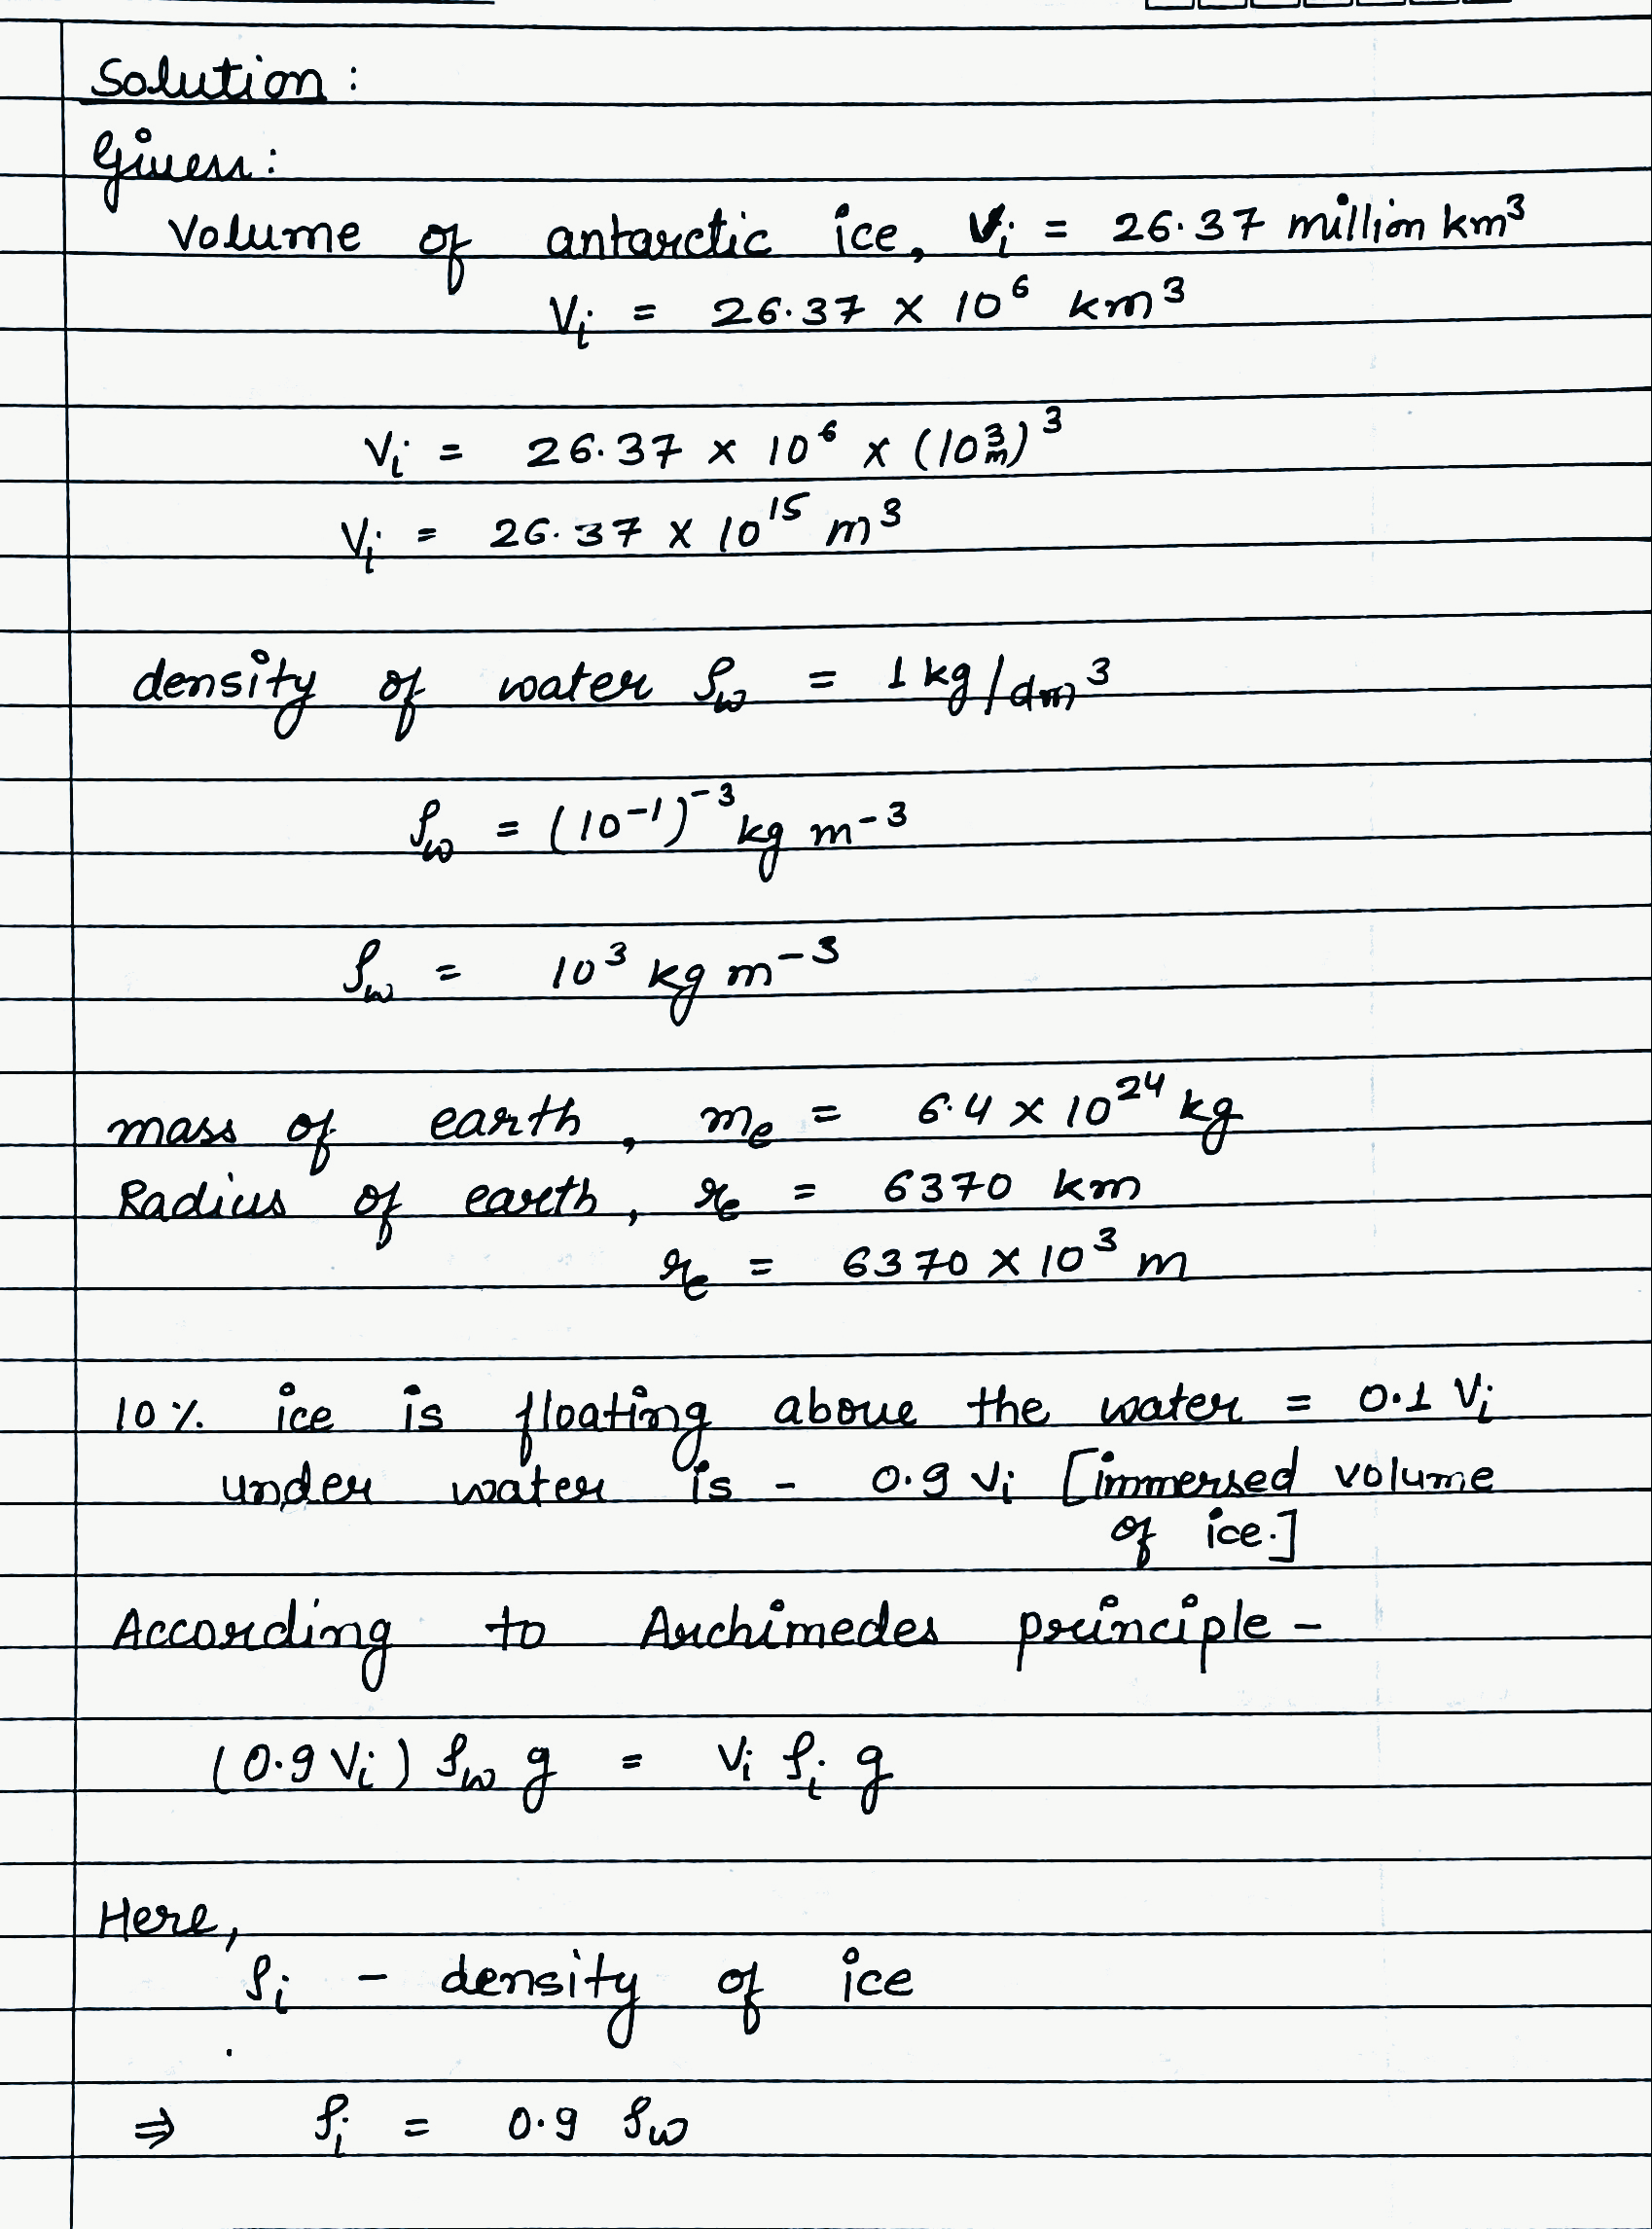 Solution :
Given:
Volume of antarctic ice, Vi = 26.37 million km³
Vi = 26.37 × 10⁶ km³
Vi = 26.37 × 10⁶ × (10³m)³
Vi = 26.37 × 10¹⁵ m³
density of water ρw = 1 kg/dm³
ρw = (10⁻¹)⁻³ kg m⁻³
ρw = 10³ kg m⁻³
mass of earth, me = 6.4 × 10²⁴ kg
Radius of earth, re = 6370 km
re = 6370 × 10³ m
10% ice is floating above the water = 0.1 Vi
under water is - 0.9 Vi [immersed volume
of ice.]
According to Archimedes principle -
(0.9 Vi) ρw g = Vi ρi g
Here,
ρi - density of ice
⇒ ρi = 0.9 ρw